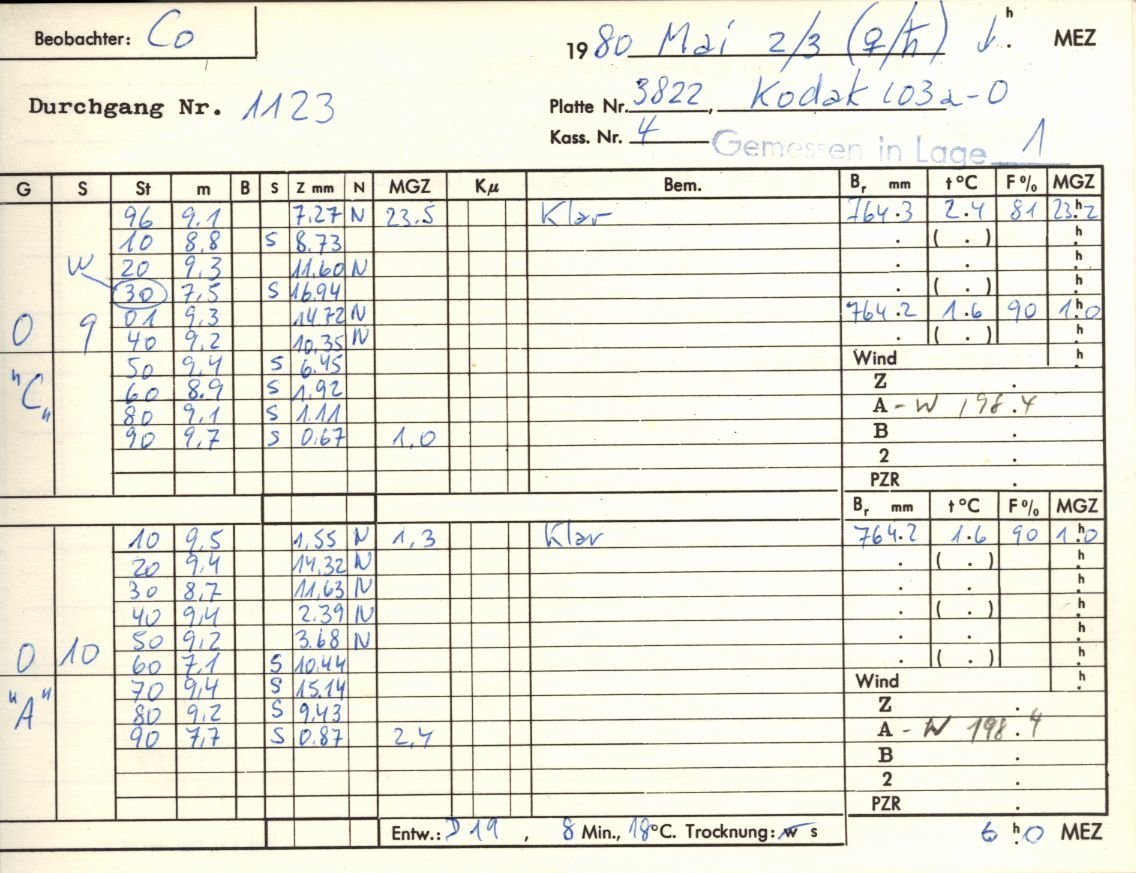 Beobachter: Co
1980 Mai 2/3 (♀/♄) h. MEZ
Durchgang Nr. 1123
Platte Nr. 3822, Kodak 103a-O
Kass. Nr. 4
Gemessen in Lage 1
G S St m B S Z mm N MGZ Kμ Bem. Br mm t °C F % MGZ
96 9.1 7.27 N 23.5 Klar 764.3 2.4 81 23h.2
10 8.8 S 8.73 . ( . ) h.
W 20 9.3 11.60 N . . h.
30 7.5 S 16.94 . ( . ) h.
0 9 01 9.3 14.72 N 764.2 1.6 90 1h.0
40 9.2 10.35 N . ( . ) h.
50 9.4 S 6.45 Wind h.
"C" 60 8.9 S 1.92 Z .
80 9.1 S 1.11 A - W 198.4
90 9.7 S 0.67 1,0 B .
2 .
PZR .
Br mm t °C F % MGZ
10 9.5 1.55 N 1,3 Klar 764.2 1.6 90 1h.0
20 9.4 14.32 N . ( . ) h.
30 8.7 11.63 N . . h.
40 9.4 2.39 N . ( . ) h.
50 9.2 3.68 N . . h.
0 10 60 7.1 S 10.44 . ( . ) h.
70 9.4 S 15.14 Wind h.
"A" 80 9.2 S 9.43 Z .
90 7.7 S 0.87 2,4 A - W 198.4
B .
2 .
PZR .
Entw.: D 19, 8 Min., 18°C. Trocknung: w s 6h.0 MEZ